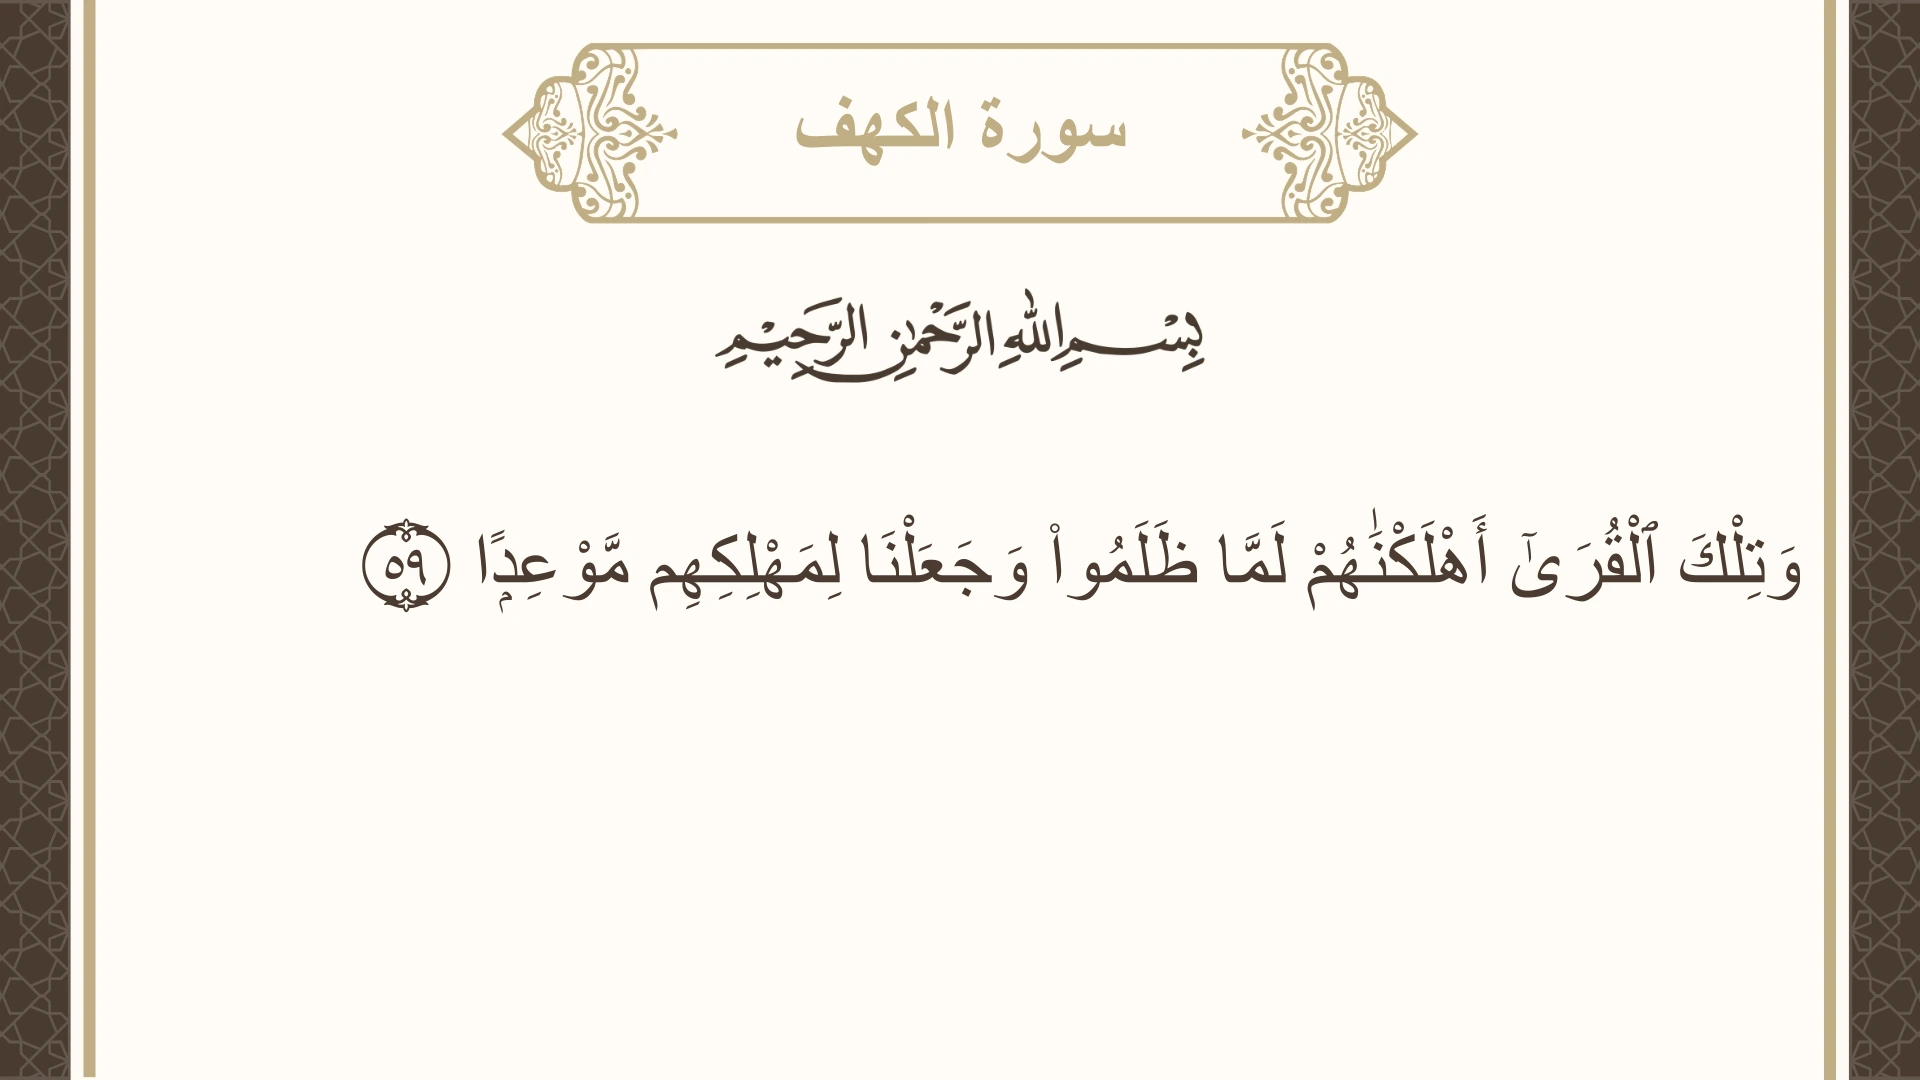 سورة الكهف
بِسْمِ اللهِ الرَّحْمٰنِ الرَّحِيْمِ
وَتِلْكَ ٱلْقُرَىٰٓ أَهْلَكْنَـٰهُمْ لَمَّا ظَلَمُوا۟ وَجَعَلْنَا لِمَهْلِكِهِم مَّوْعِدًۭا ٥٩